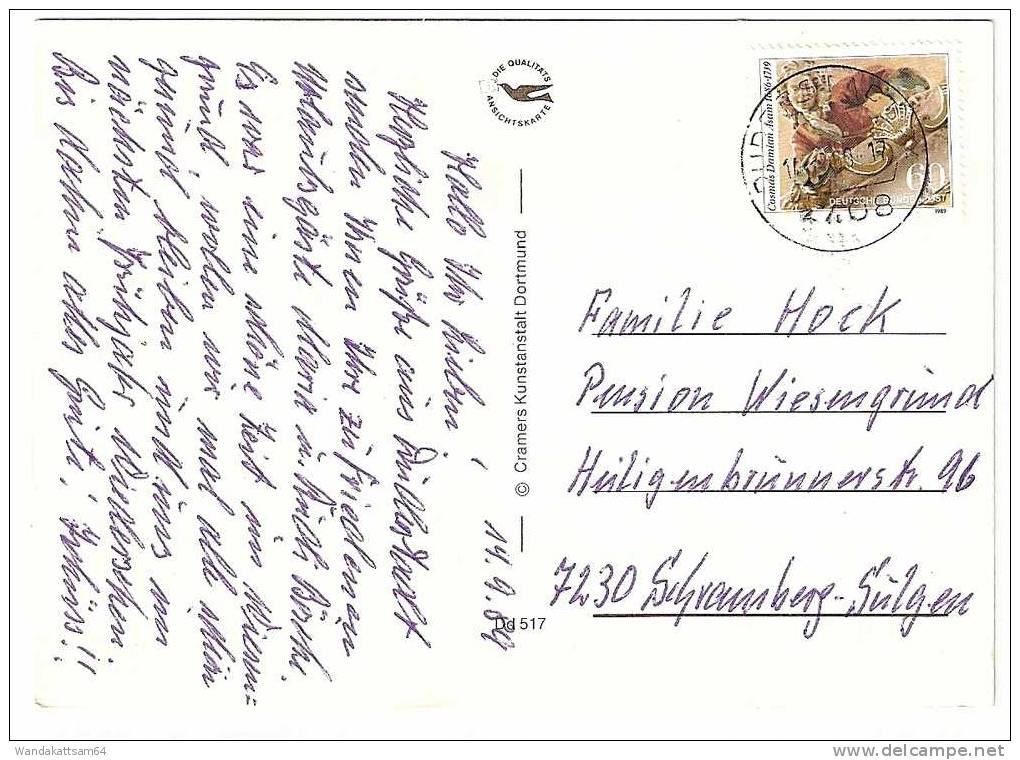 14.9.89
Hallo Ihr Lieben!
Herzliche Grüße aus
senden Ihnen Ihre zufriedenen
Urlaubsgäste Maria u.
Es war eine schöne Zeit im
wollen wir mal alle
gesund bleiben und uns im
nächsten Frühjahr Wiedersehen.
Bis dahin alles Gute, Tschüss!!
DIE QUALITÄTS
ANSICHTSKARTE
© Cramers Kunstanstalt Dortmund
Dd 517
Cosmas Damian Asam 1686-1739
60
DEUTSCHE BUNDESPOST
1989
4408
Familie Hock
Pension Wiesengrund
Heiligenbrunnerstr. 96
7230 Schramberg-Sulgen
Wandakattsam64
www.delcampe.net